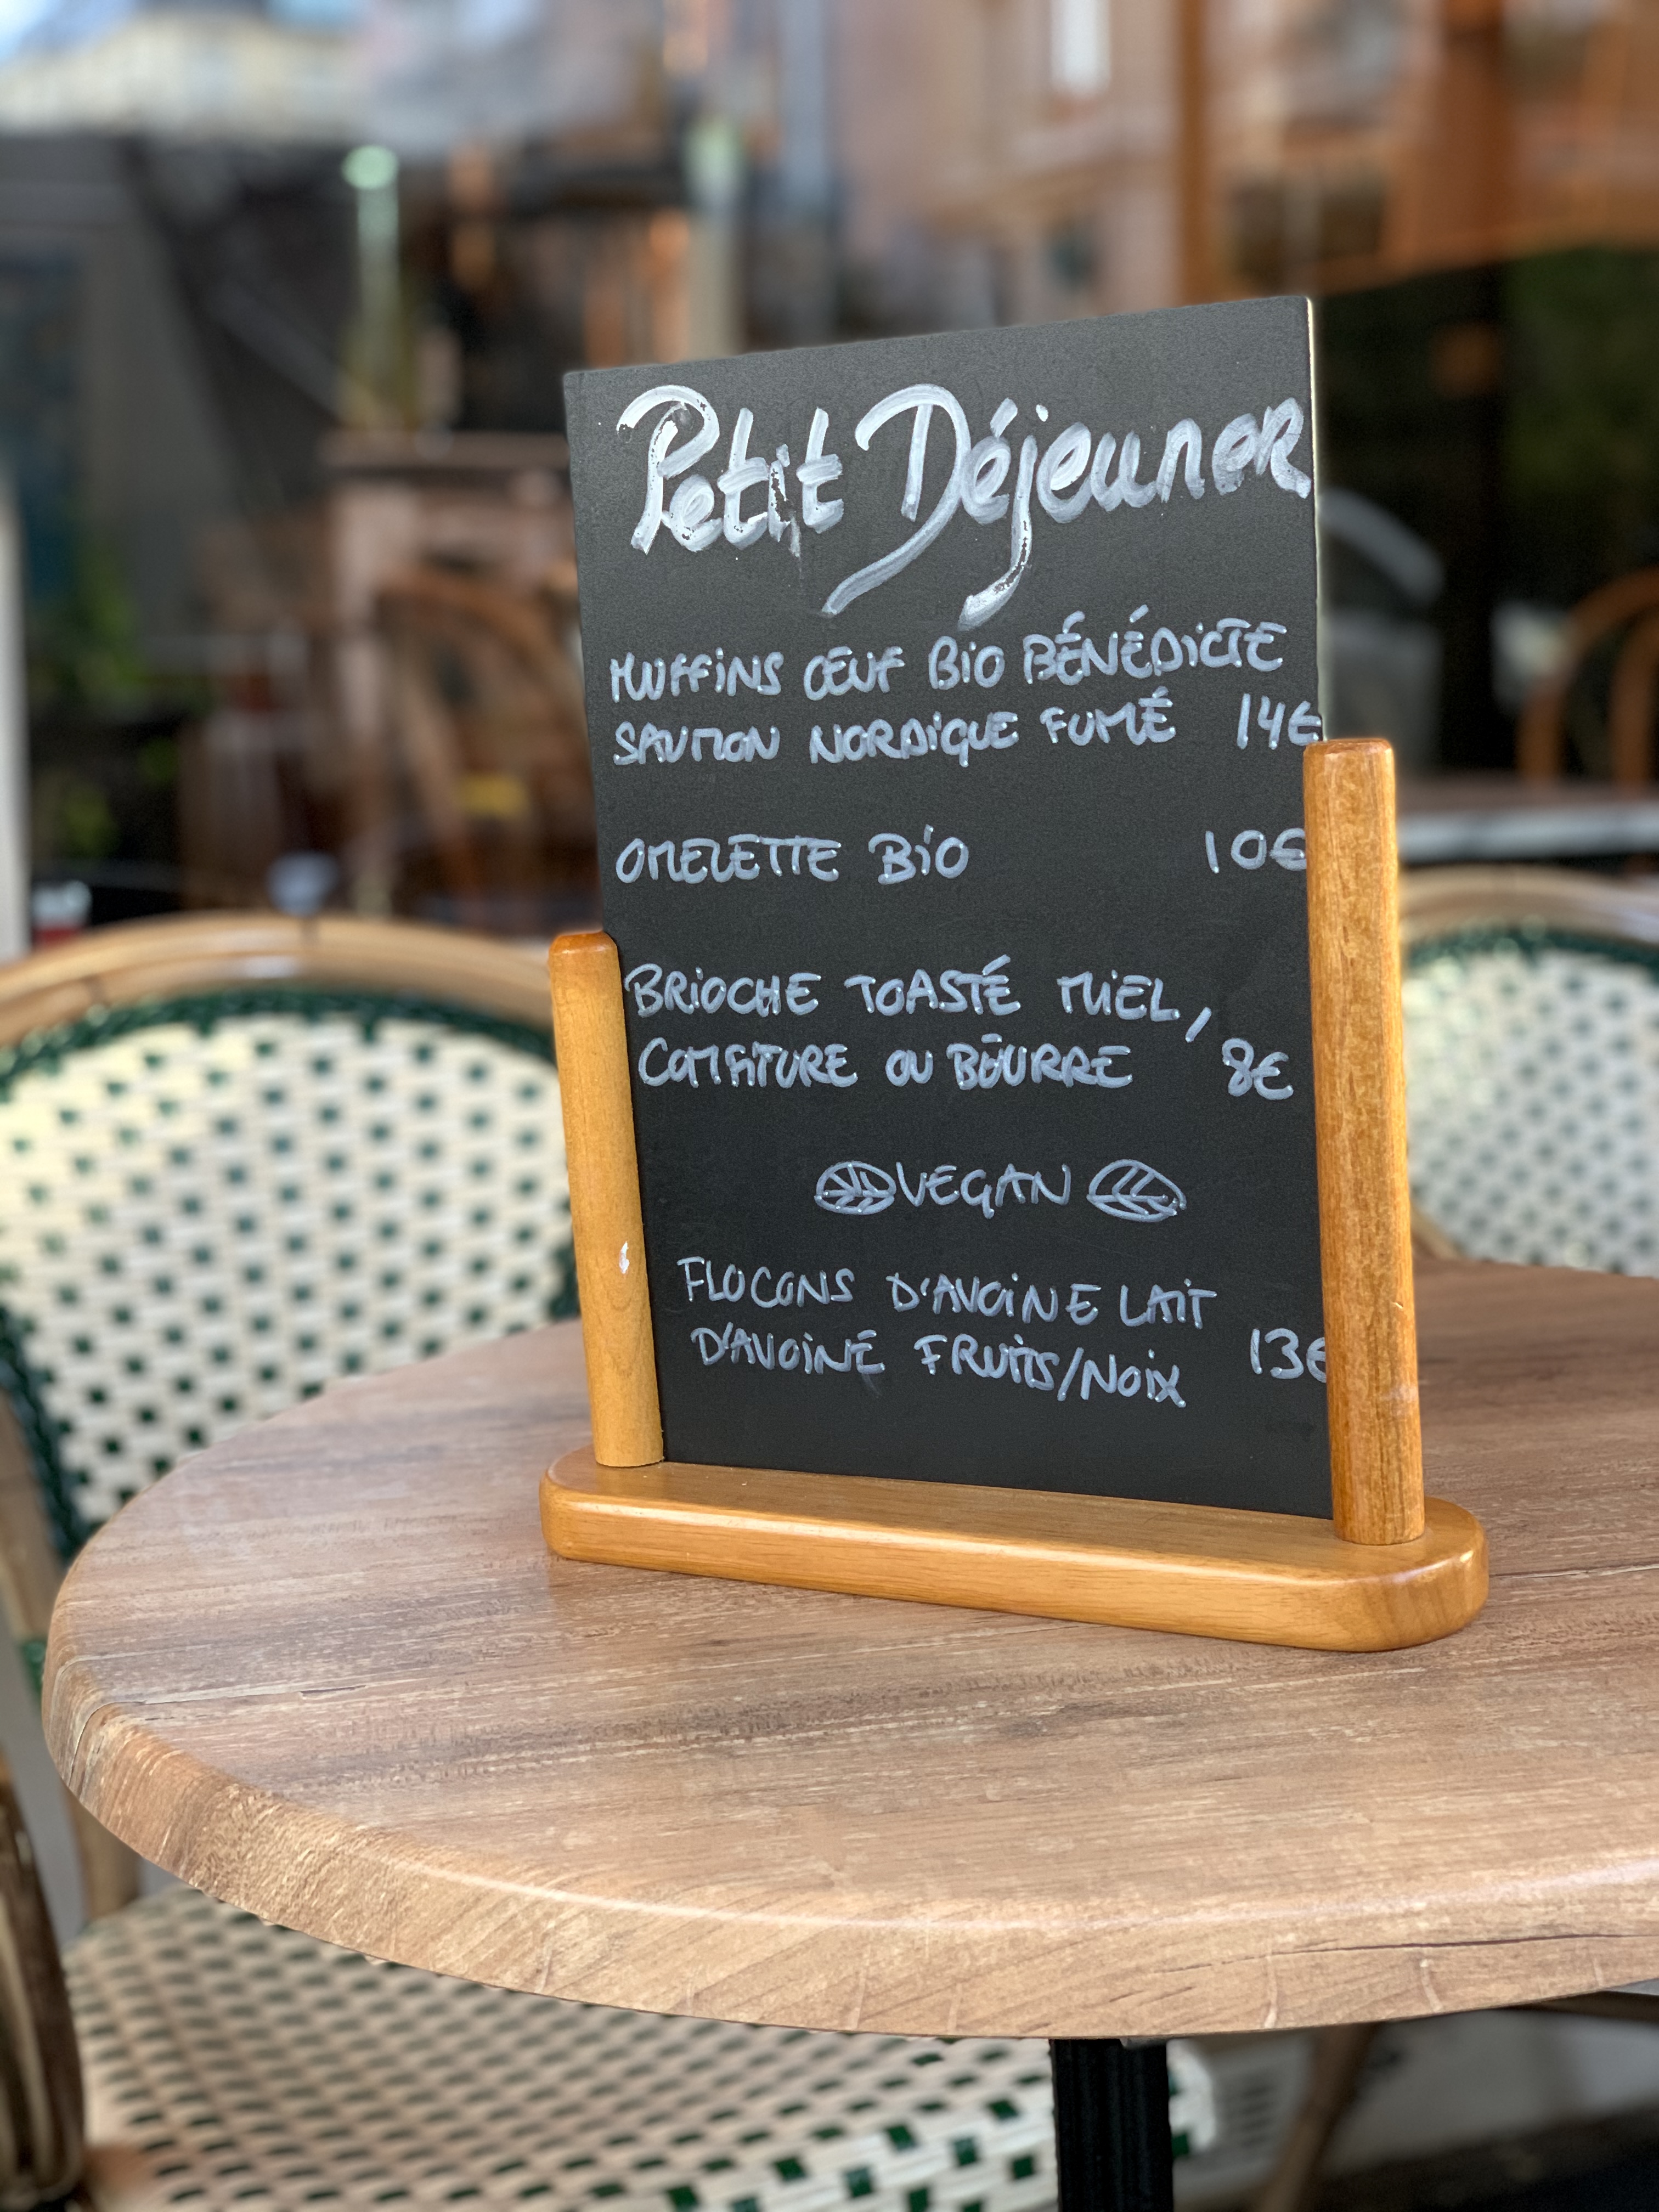 Petit Déjeuner
MUFFINS ŒUF BIO BÉNÉDICTE
SAUMON NORDIQUE FUMÉ 14€
OMELETTE BIO 10€
BRIOCHE TOASTÉ MIEL,
CONFITURE OU BEURRE 8€
VEGAN
FLOCONS D'AVOINE LAIT
D'AVOINE FRUITS/NOIX 13€